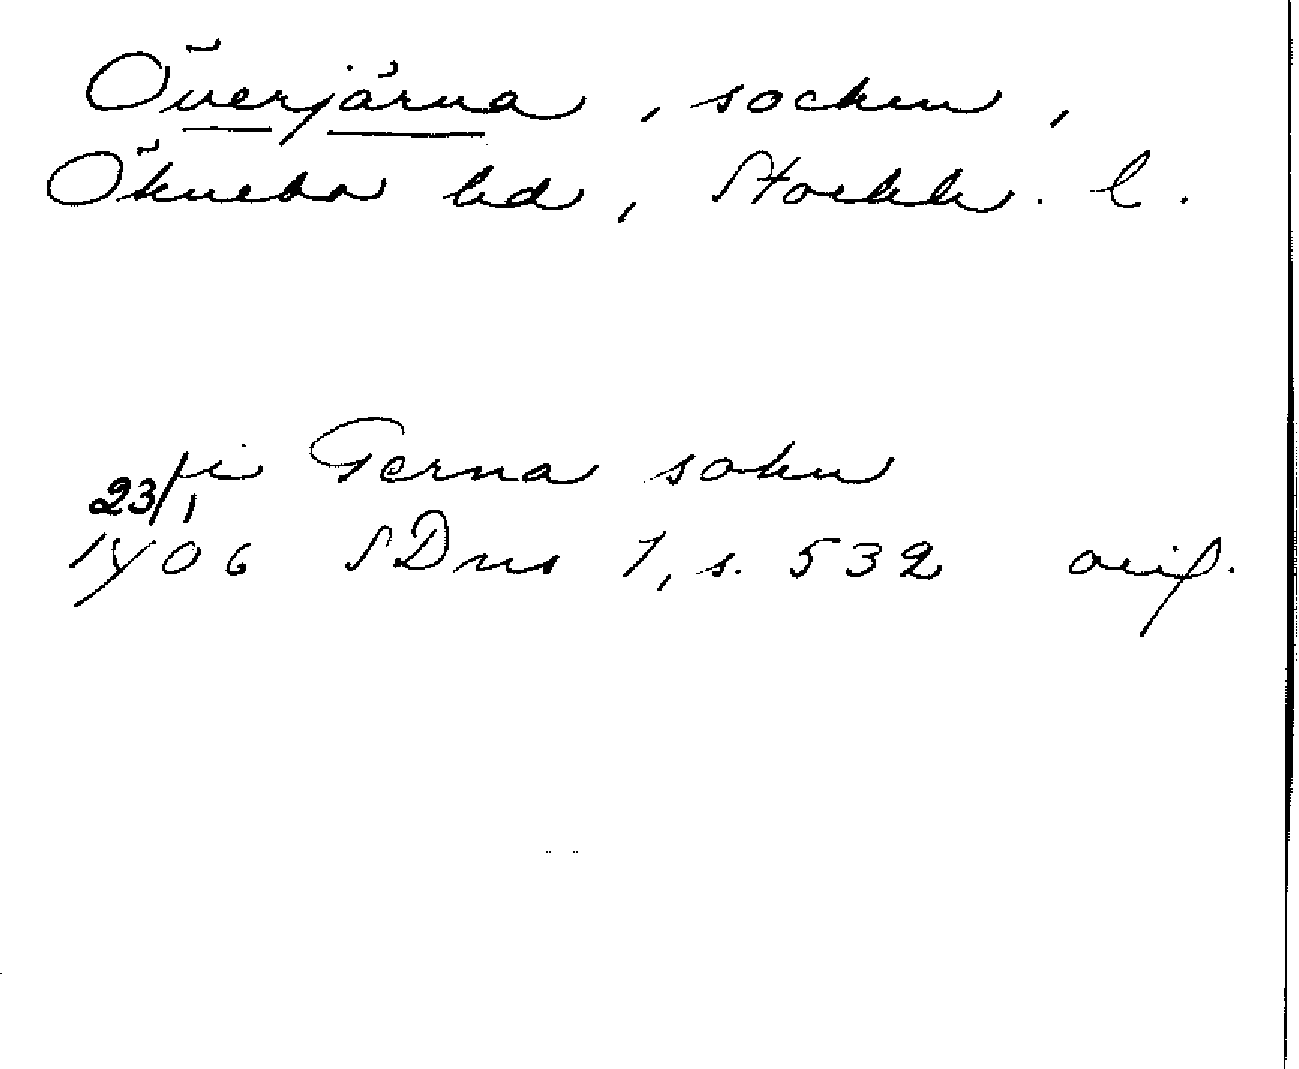 Överjärna, socken,
Öknebo hd, Stockh. l.
i Gerna sokn
23/1
1406 SDns 1, s. 532 orig.